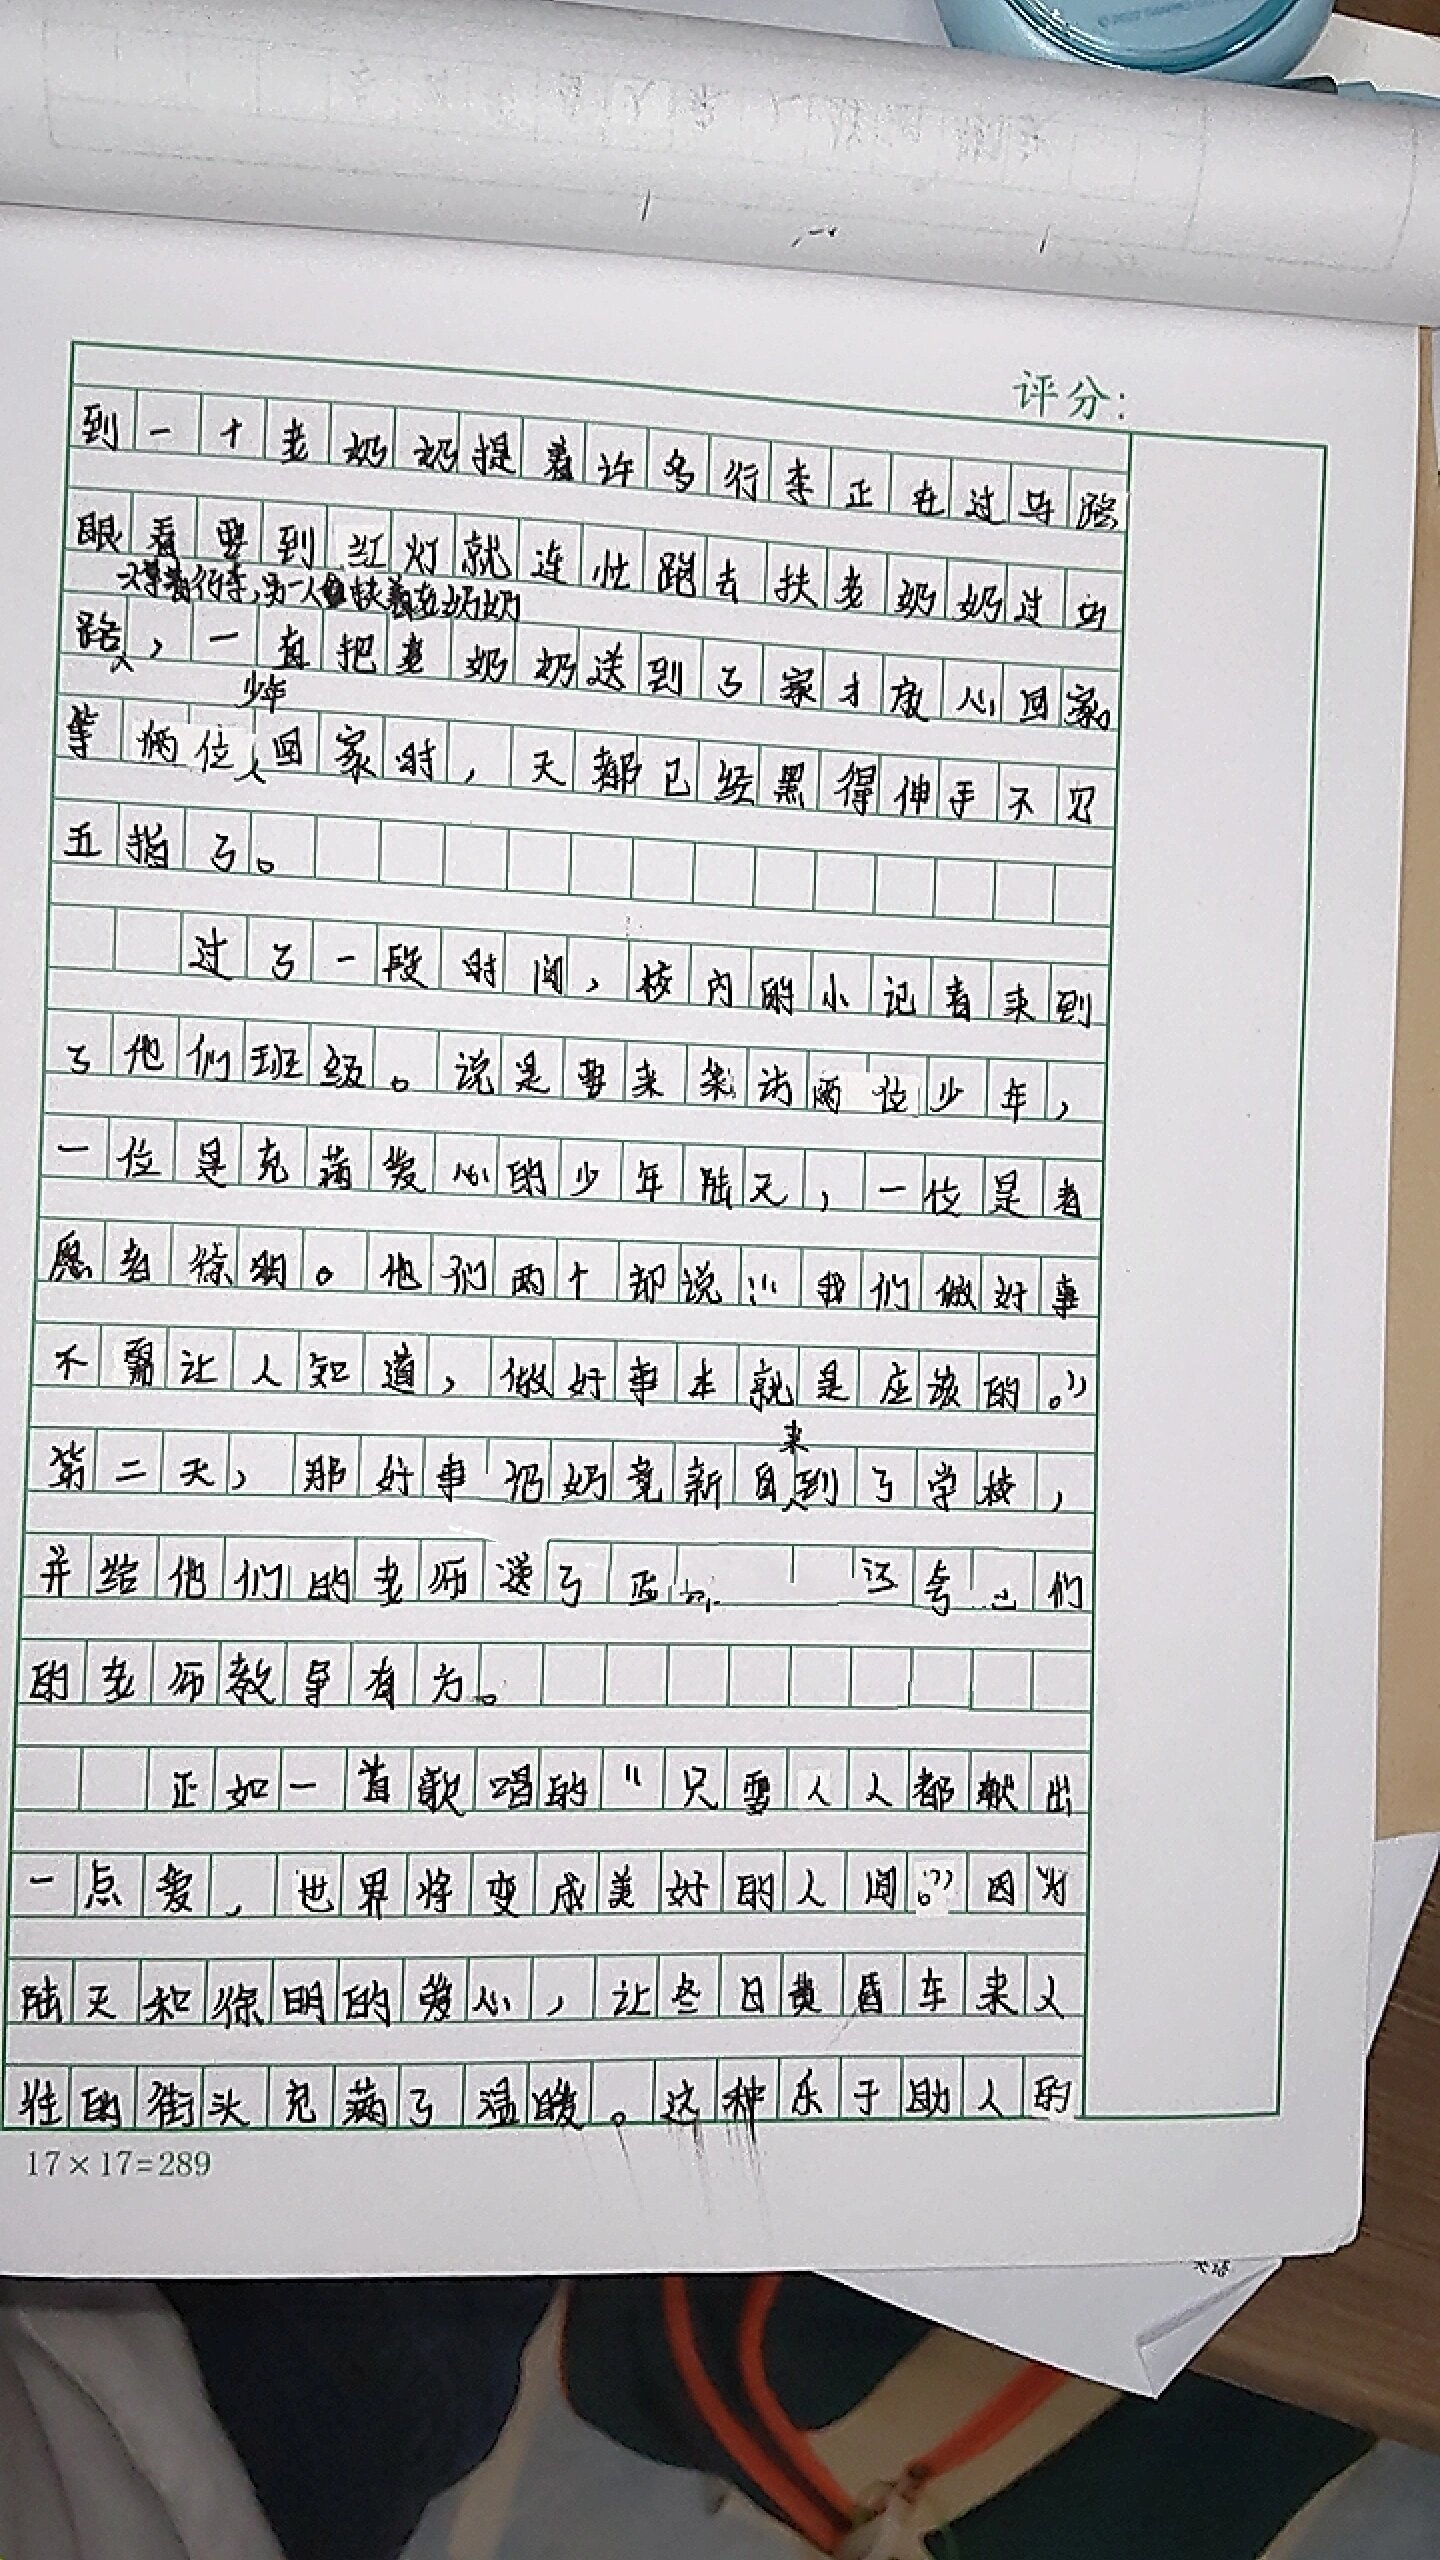 评分:
到一个老奶奶提着许多行李正在过马路
眼看要到红灯就连忙跑去扶老奶奶过马
行李,另一人扶着老奶奶
路,一直把老奶奶送到了家才放心回家。
少年
等俩位回家时,天都已经黑得伸手不见
五指了。
过了一段时间,校内的小记者来到
了他们班级。说是要来采访两位少年,
一位是充满爱心的少年陆天,一位是者
愿者徐明。他们两个却说:“我们做好事
不需让人知道,做好事本就是应该的。”
来
第二天,那好事奶奶竟新自到了学校,
并给他们的老师送了 夸 们
的老师教导有方。
正如一首歌唱的“只要人人都献出
一点爱,世界将变成美好的人间。”因为
陆天和徐明的爱心,让冬日黄昏车来人
往的街头充满了温暖。这种乐于助人的
17×17=289